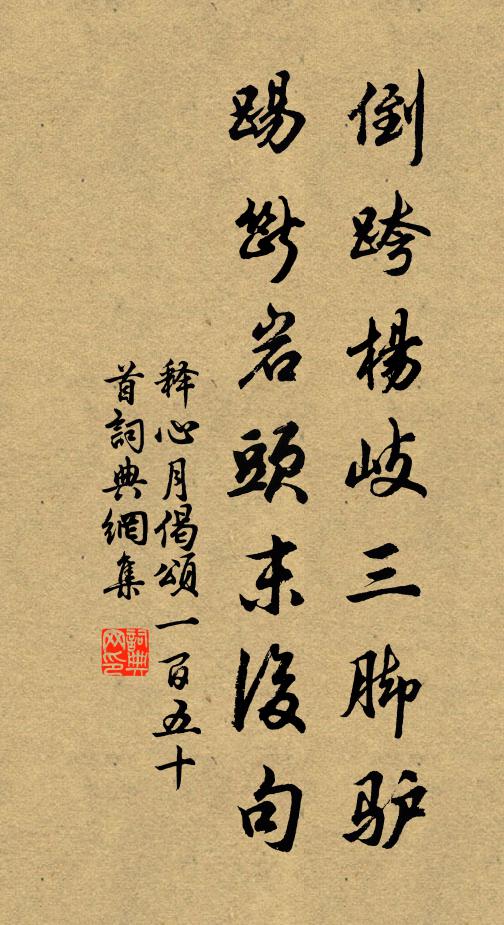 倒跨楊岐三脚驴
踢断岩頭末後句
释心月偈頌一百五十
首詞典網集
詞典网印